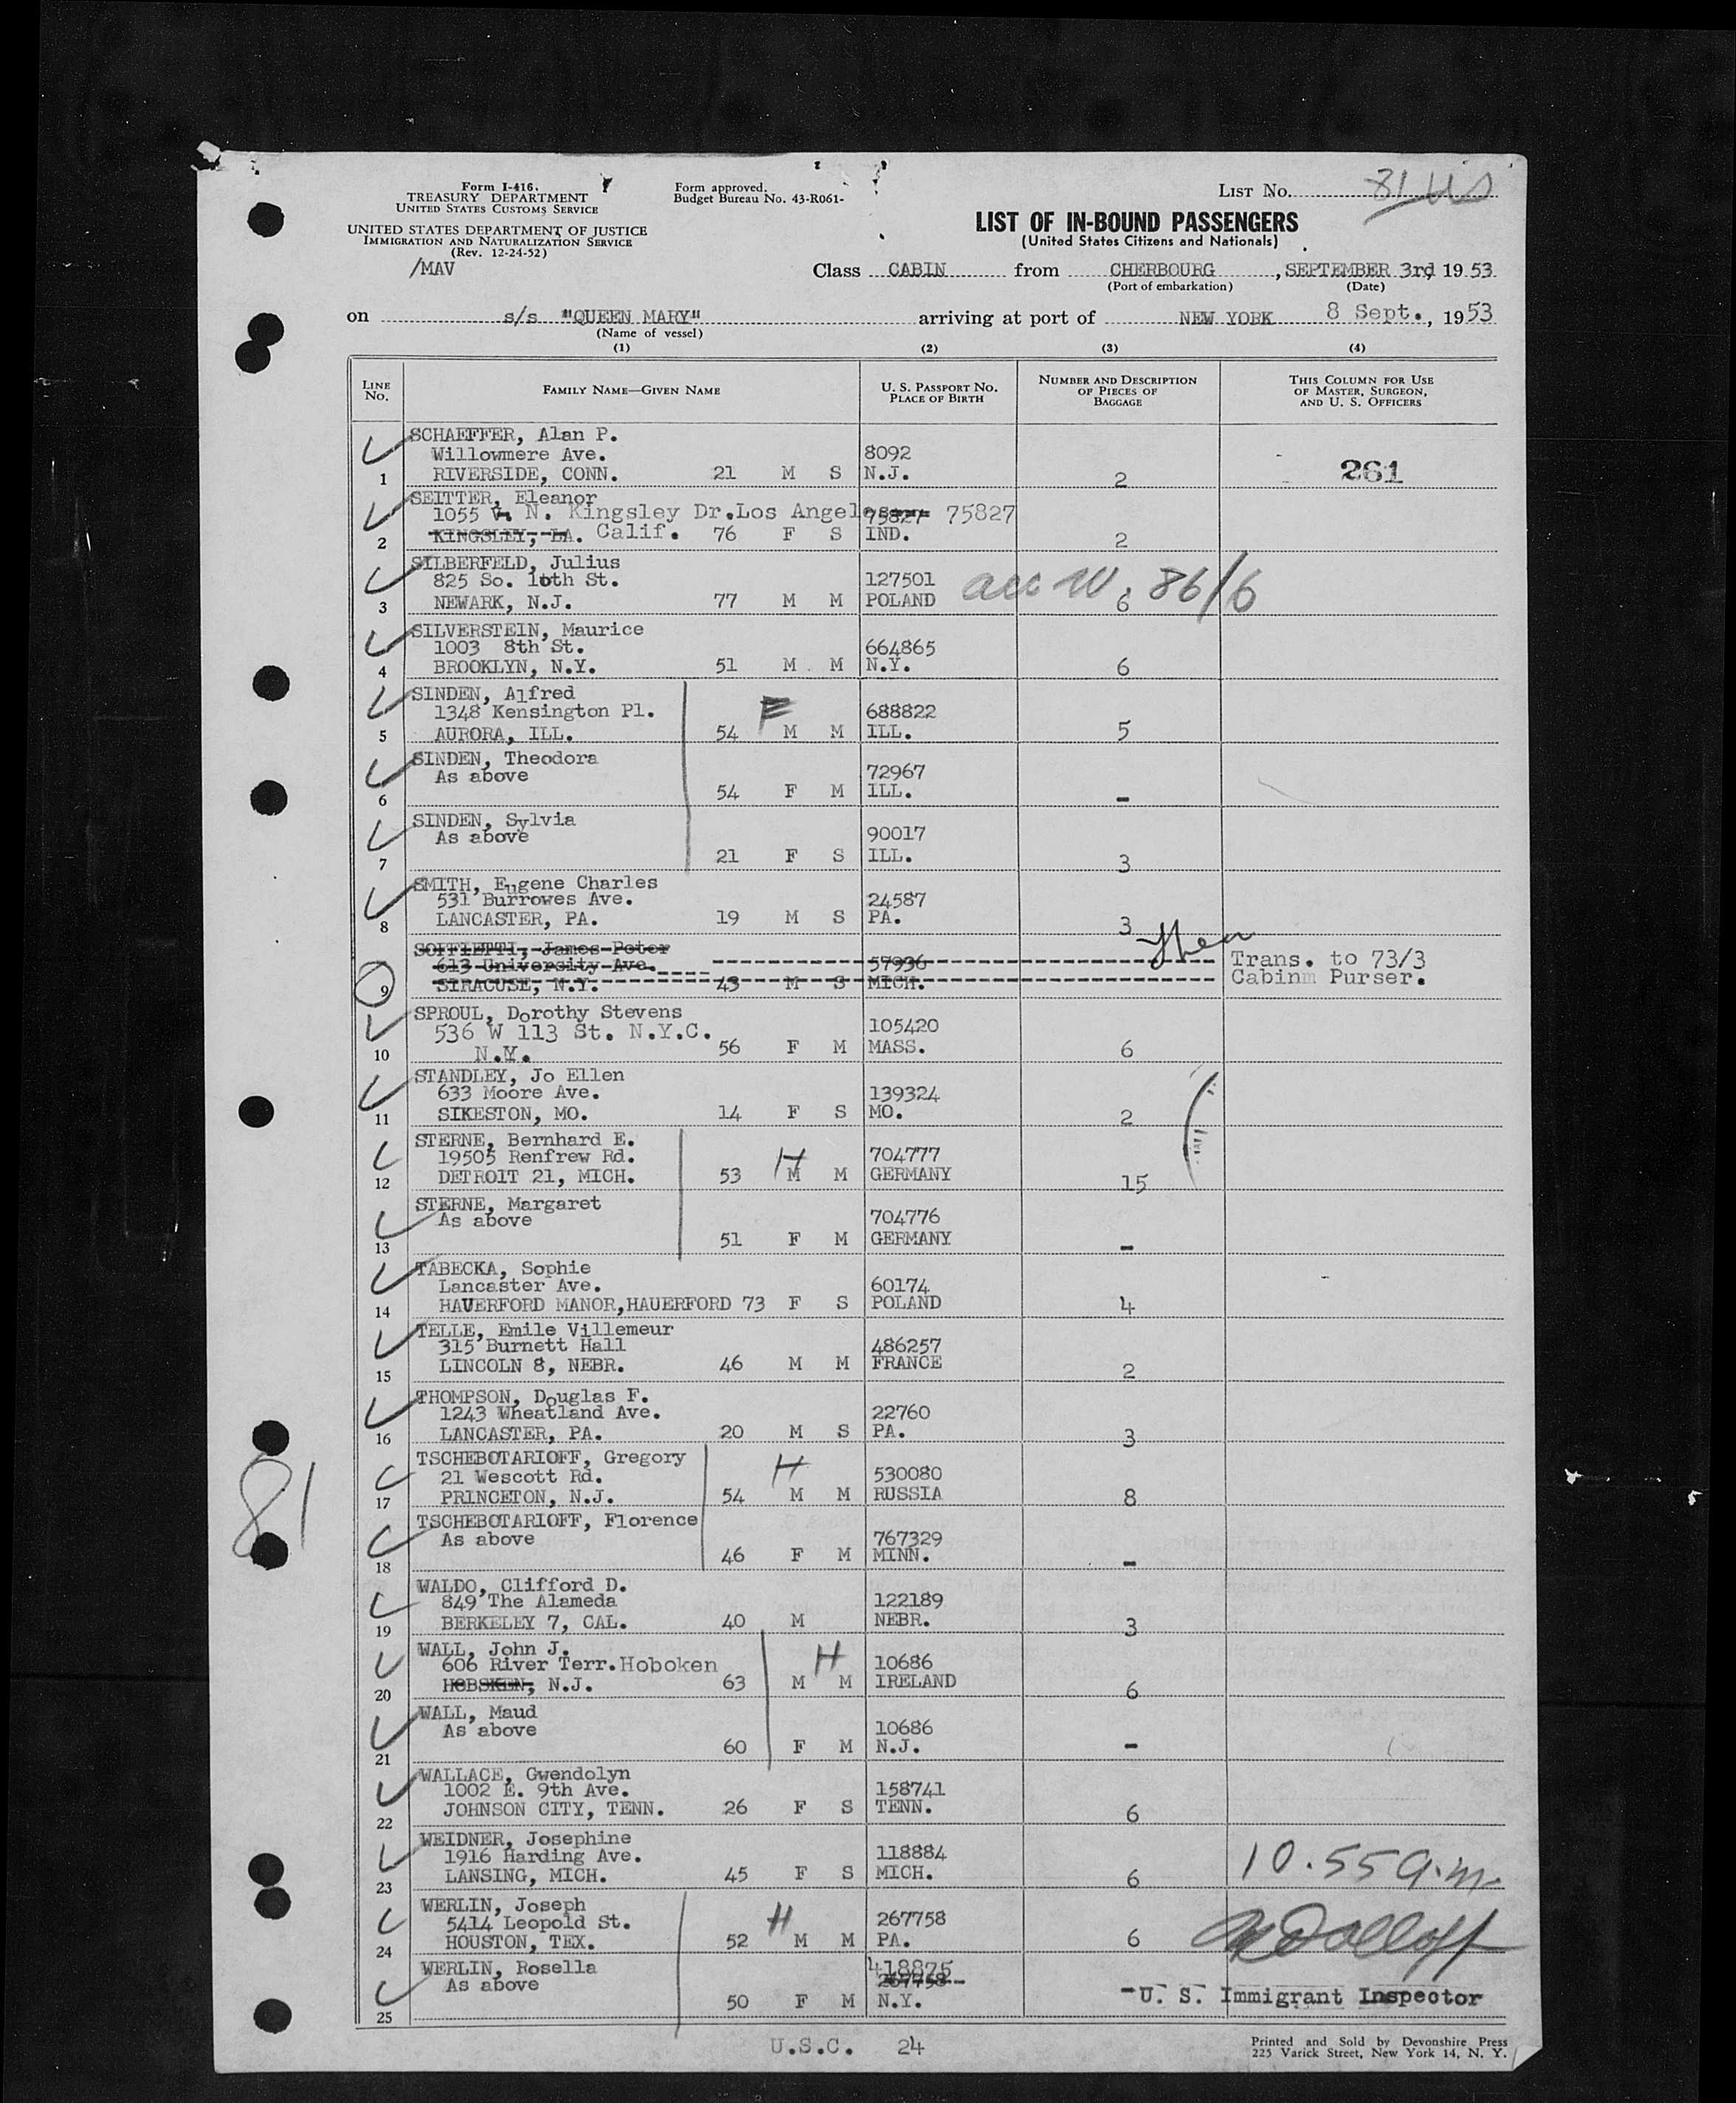 Form I-416.
TREASURY DEPARTMENT
UNITED STATES CUSTOMS SERVICE
UNITED STATES DEPARTMENT OF JUSTICE
IMMIGRATION AND NATURALIZATION SERVICE
(Rev. 12-24-52)
/MAV
Form approved.
Budget Bureau No. 43-R061-
LIST NO. 81 US
LIST OF IN-BOUND PASSENGERS
(United States Citizens and Nationals)
Class CABIN from CHERBOURG, SEPTEMBER 3rd, 1953
(Port of embarkation) (Date)
on s/s "QUEEN MARY" arriving at port of NEW YORK 8 Sept., 1953
(Name of vessel)
(1) (2) (3) (4)
LINE No. FAMILY NAME—GIVEN NAME U. S. PASSPORT NO. PLACE OF BIRTH NUMBER AND DESCRIPTION OF PIECES OF BAGGAGE THIS COLUMN FOR USE OF MASTER, SURGEON, AND U. S. OFFICERS
SCHAEFFER, Alan P.
Willowmere Ave. 8092
1 RIVERSIDE, CONN. 21 M S N.J. 2 261
SEITTER, Eleanor
1055 N. Kingsley Dr.Los Angeles 75827 75827
2 KINGSLEY, LA. Calif. 76 F S IND. 2
SILBERFELD, Julius
825 So. 10th St. 127501 acc W. 86/6
3 NEWARK, N.J. 77 M M POLAND 6
SILVERSTEIN, Maurice
1003 8th St. 664865
4 BROOKLYN, N.Y. 51 M M N.Y. 6
SINDEN, Alfred
1348 Kensington Pl. 688822
5 AURORA, ILL. 54 M M ILL. 5
SINDEN, Theodora
As above 72967
6 54 F M ILL. -
SINDEN, Sylvia
As above 90017
7 21 F S ILL. 3
SMITH, Eugene Charles
531 Burrowes Ave. 24587
8 LANCASTER, PA. 19 M S PA. 3
SOFFIETTI, James Peter
613 University Ave. 57936 Trans. to 73/3
9 SIRACUSE, N.Y. 43 M S MICH. Cabinm Purser.
SPROUL, Dorothy Stevens
536 W 113 St. N.Y.C. 105420
10 N.Y. 56 F M MASS. 6
STANDLEY, Jo Ellen
633 Moore Ave. 139324
11 SIKESTON, MO. 14 F S MO. 2
STERNE, Bernhard E.
19505 Renfrew Rd. H 704777
12 DETROIT 21, MICH. 53 M M GERMANY 15
STERNE, Margaret
As above 704776
13 51 F M GERMANY -
TABECKA, Sophie
Lancaster Ave. 60174
14 HAUERFORD MANOR,HAUERFORD 73 F S POLAND 4
TELLE, Emile Villemeur
315 Burnett Hall 486257
15 LINCOLN 8, NEBR. 46 M M FRANCE 2
THOMPSON, Douglas F.
1243 Wheatland Ave. 22760
16 LANCASTER, PA. 20 M S PA. 3
81
TSCHEBOTARIOFF, Gregory
21 Wescott Rd. H 530080
17 PRINCETON, N.J. 54 M M RUSSIA 8
TSCHEBOTARIOFF, Florence
As above 767329
18 46 F M MINN. -
WALDO, Clifford D.
849 The Alameda 122189
19 BERKELEY 7, CAL. 40 M NEBR. 3
WALL, John J.
606 River Terr.Hoboken H 10686
20 HOBSKEN, N.J. 63 M M IRELAND 6
WALL, Maud
As above 10686
21 60 F M N.J. -
WALLACE, Gwendolyn
1002 E. 9th Ave. 158741
22 JOHNSON CITY, TENN. 26 F S TENN. 6
WEIDNER, Josephine
1916 Harding Ave. 118884
23 LANSING, MICH. 45 F S MICH. 6 10.55 a.m.
WERLIN, Joseph
5414 Leopold St. H 267758
24 HOUSTON, TEX. 52 M M PA. 6
WERLIN, Rosella 418875
As above 267758
25 50 F M N.Y. -U. S. Immigrant Inspector
U.S.C. 24
Printed and Sold by Devonshire Press
225 Varick Street, New York 14, N. Y.